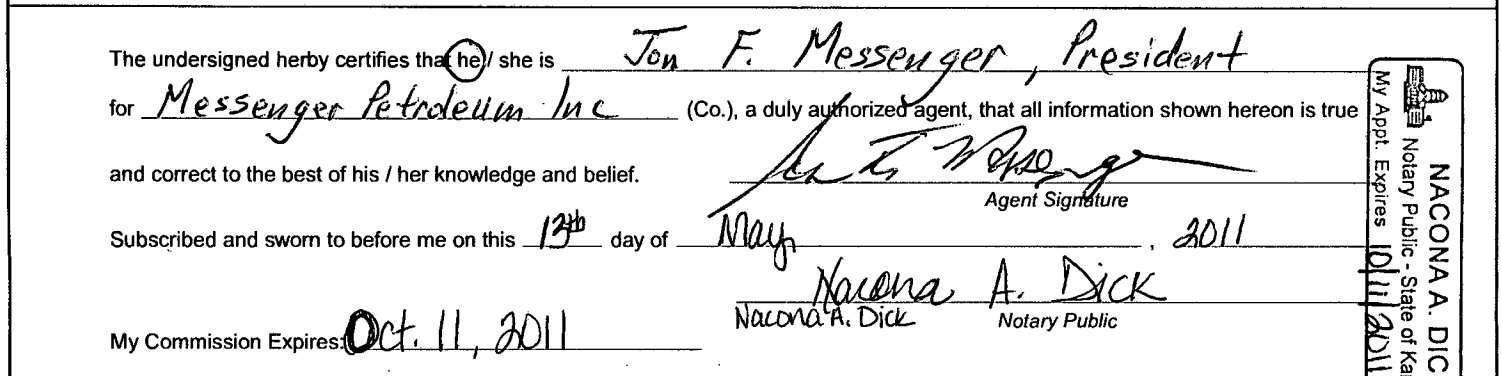 The undersigned herby certifies that he / she is Jon F. Messenger, President
for Messenger Petroleum Inc (Co.), a duly authorized agent, that all information shown hereon is true
and correct to the best of his / her knowledge and belief.
Agent Signature
Subscribed and sworn to before me on this 13th day of May, , 2011
Nacona A. Dick
Nacona A. Dick Notary Public
My Commission Expires: Oct. 11, 2011
NACONA A. DIC
Notary Public - State of Ka
My Appt. Expires 10/11/2011